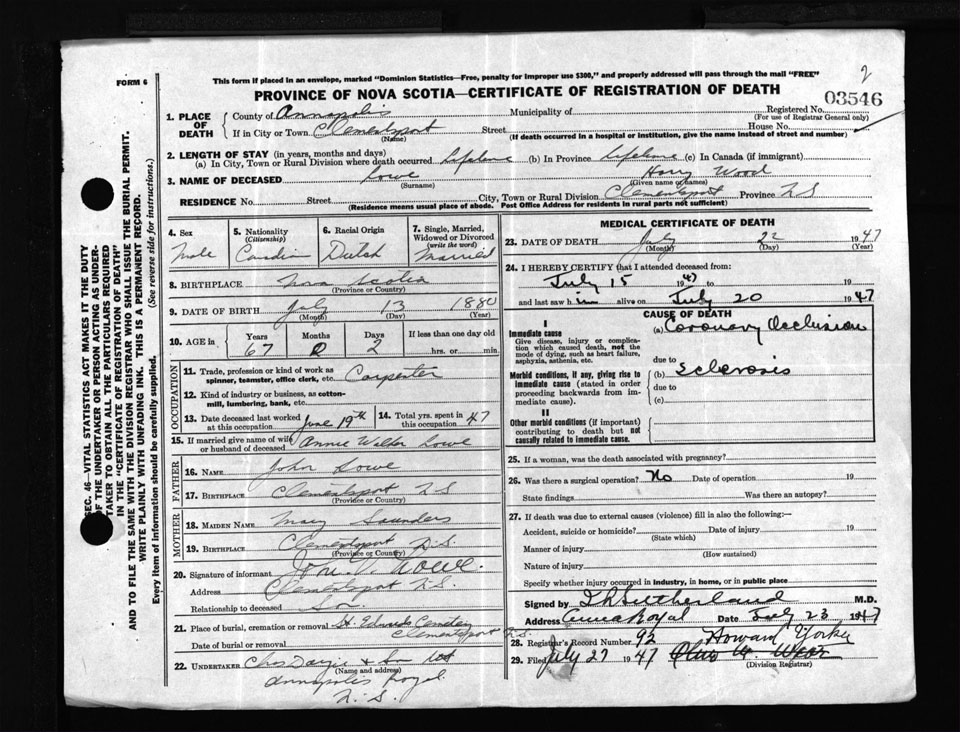 2
FORM 6
This form if placed in an envelope, marked "Dominion Statistics—Free, penalty for improper use $300," and properly addressed will pass through the mail "FREE"
PROVINCE OF NOVA SCOTIA—CERTIFICATE OF REGISTRATION OF DEATH
03546
1. PLACE OF DEATH County of Annapolis Municipality of Registered No.
(For use of Registrar General only)
If in City or Town Clementsport Street House No.
(Name) (If death occurred in a hospital or institution, give the name instead of street and number)
2. LENGTH OF STAY (in years, months and days)
(a) In City, Town or Rural Division where death occurred Lifetime (b) In Province Lifetime (c) In Canada (if immigrant)
3. NAME OF DECEASED Lowe Harry Wood
(Surname) (Given name or names)
RESIDENCE No. Street City, Town or Rural Division Clementsport Province N.S
(Residence means usual place of abode. Post Office Address for residents in rural parts not sufficient)
4. Sex Male
5. Nationality (Citizenship) Canadian
6. Racial Origin Dutch
7. Single, Married, Widowed or Divorced (write the word) Married
8. BIRTHPLACE Nova Scotia
(Province or Country)
9. DATE OF BIRTH July 13 1880
(Month) (Day) (Year)
10. AGE in Years 67 Months 0 Days 2 If less than one day old hrs. or min.
OCCUPATION
11. Trade, profession or kind of work as spinner, teamster, office clerk, etc. Carpenter
12. Kind of industry or business, as cotton-mill, lumbering, bank, etc.
13. Date deceased last worked at this occupation June 19th
14. Total yrs. spent in this occupation 47
15. If married give name of wife or husband of deceased Annie Lowe
FATHER
16. NAME John Lowe
17. BIRTHPLACE Clementsport N.S
(Province or Country)
MOTHER
18. MAIDEN NAME Mary Saunders
19. BIRTHPLACE Clementsport N.S.
(Province or Country)
20. Signature of informant Lowe.
Address Clementsport N.S.
Relationship to deceased Son.
21. Place of burial, cremation or removal St. Edwards Cemetery
Clementsport N.S.
Date of burial or removal
22. UNDERTAKER Chas Dargie & Son Ltd
(Name and address)
Annapolis Royal
N.S.
MEDICAL CERTIFICATE OF DEATH
23. DATE OF DEATH July 22 1947
(Month) (Day) (Year)
24. I HEREBY CERTIFY that I attended deceased from:
July 15 1947 to 19
and last saw him alive on July 20 1947
CAUSE OF DEATH
I
Immediate cause (a) Coronary Occlusion
Give disease, injury or complication which caused death, not the mode of dying, such as heart failure, asphyxia, asthenia, etc.
due to
Morbid conditions, if any, giving rise to immediate cause (stated in order proceeding backwards from immediate cause).
(b) Sclerosis
due to
(c)
II
Other morbid conditions (if important) contributing to death but not causally related to immediate cause.
25. If a woman, was the death associated with pregnancy?
26. Was there a surgical operation? No Date of operation 19
State findings Was there an autopsy?
27. If death was due to external causes (violence) fill in also the following:—
Accident, suicide or homicide? Date of injury 19
(State which)
Manner of injury
(How sustained)
Nature of injury
Specify whether injury occurred in industry, in home, or in public place
Signed by Sutherland M.D.
Address Anna Royal Date July 23 1947
28. Registrar's Record Number 92 Howard Yorke
29. Filed July 27 1947
(Division Registrar)
SEC. 46—VITAL STATISTICS ACT MAKES IT THE DUTY
OF THE UNDERTAKER OR PERSON ACTING AS UNDER-
TAKER TO OBTAIN ALL THE PARTICULARS REQUIRED
IN THE "CERTIFICATE OF REGISTRATION OF DEATH"
AND TO FILE THE SAME WITH THE DIVISION REGISTRAR WHO SHALL ISSUE THE BURIAL PERMIT.
WRITE PLAINLY WITH UNFADING INK. THIS IS A PERMANENT RECORD.
Every item of information should be carefully supplied. (See reverse side for instructions.)